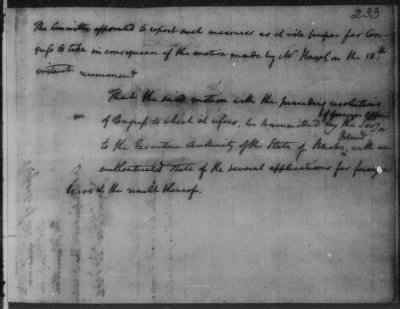 233
The Committee appointed to report such measures as it will be proper for Con-
gress to take in consequence of the motion made by Mr Hazel on the 18th
instant recommend
That the said motion with the preceding resolutions
of foreign Affairs
of Congress to which it refers, be transmitted by the Secy
Island
to the Executive Authority of the State of Rhode, with an
authenticated State of the several applications for foreign
loans & the result thereof.